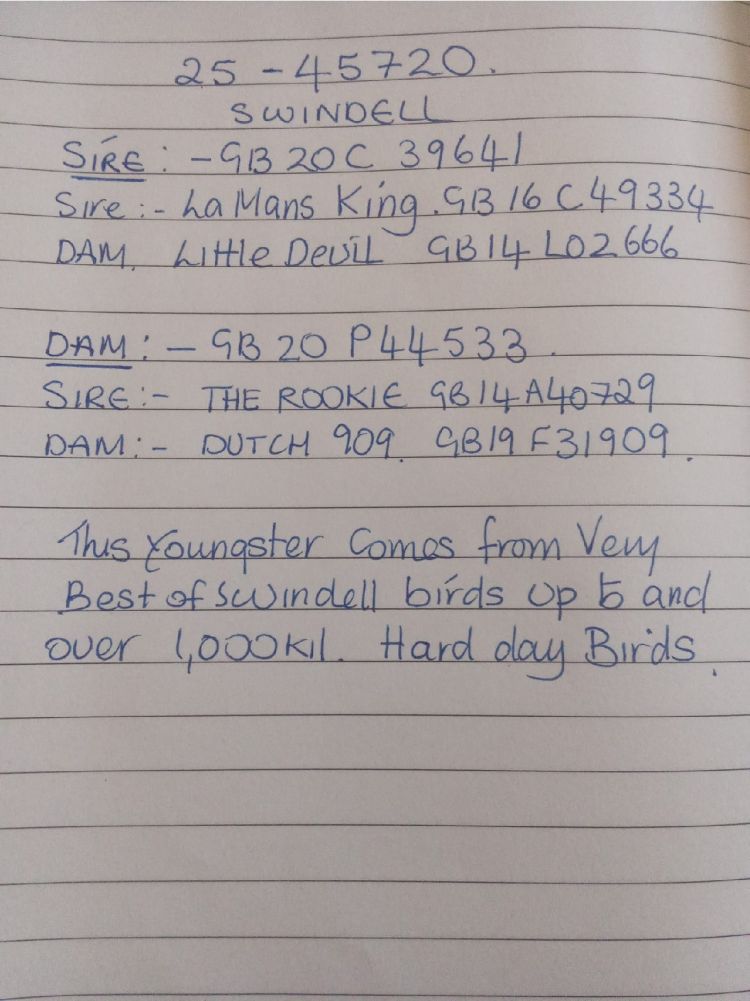 25 - 45720.
SWINDELL
SIRE : - GB 20C 39641
Sire :- La Mans King. GB 16 C49334
DAM. Little Devil GB14 L02666
DAM : - GB 20 P44533.
SIRE :- THE ROOKIE GB14A40729
DAM :- DUTCH 909. GB19 F31909.
This Youngster Comes from Very
Best of Swindell birds up to and
over 1,000Kil. Hard day Birds.